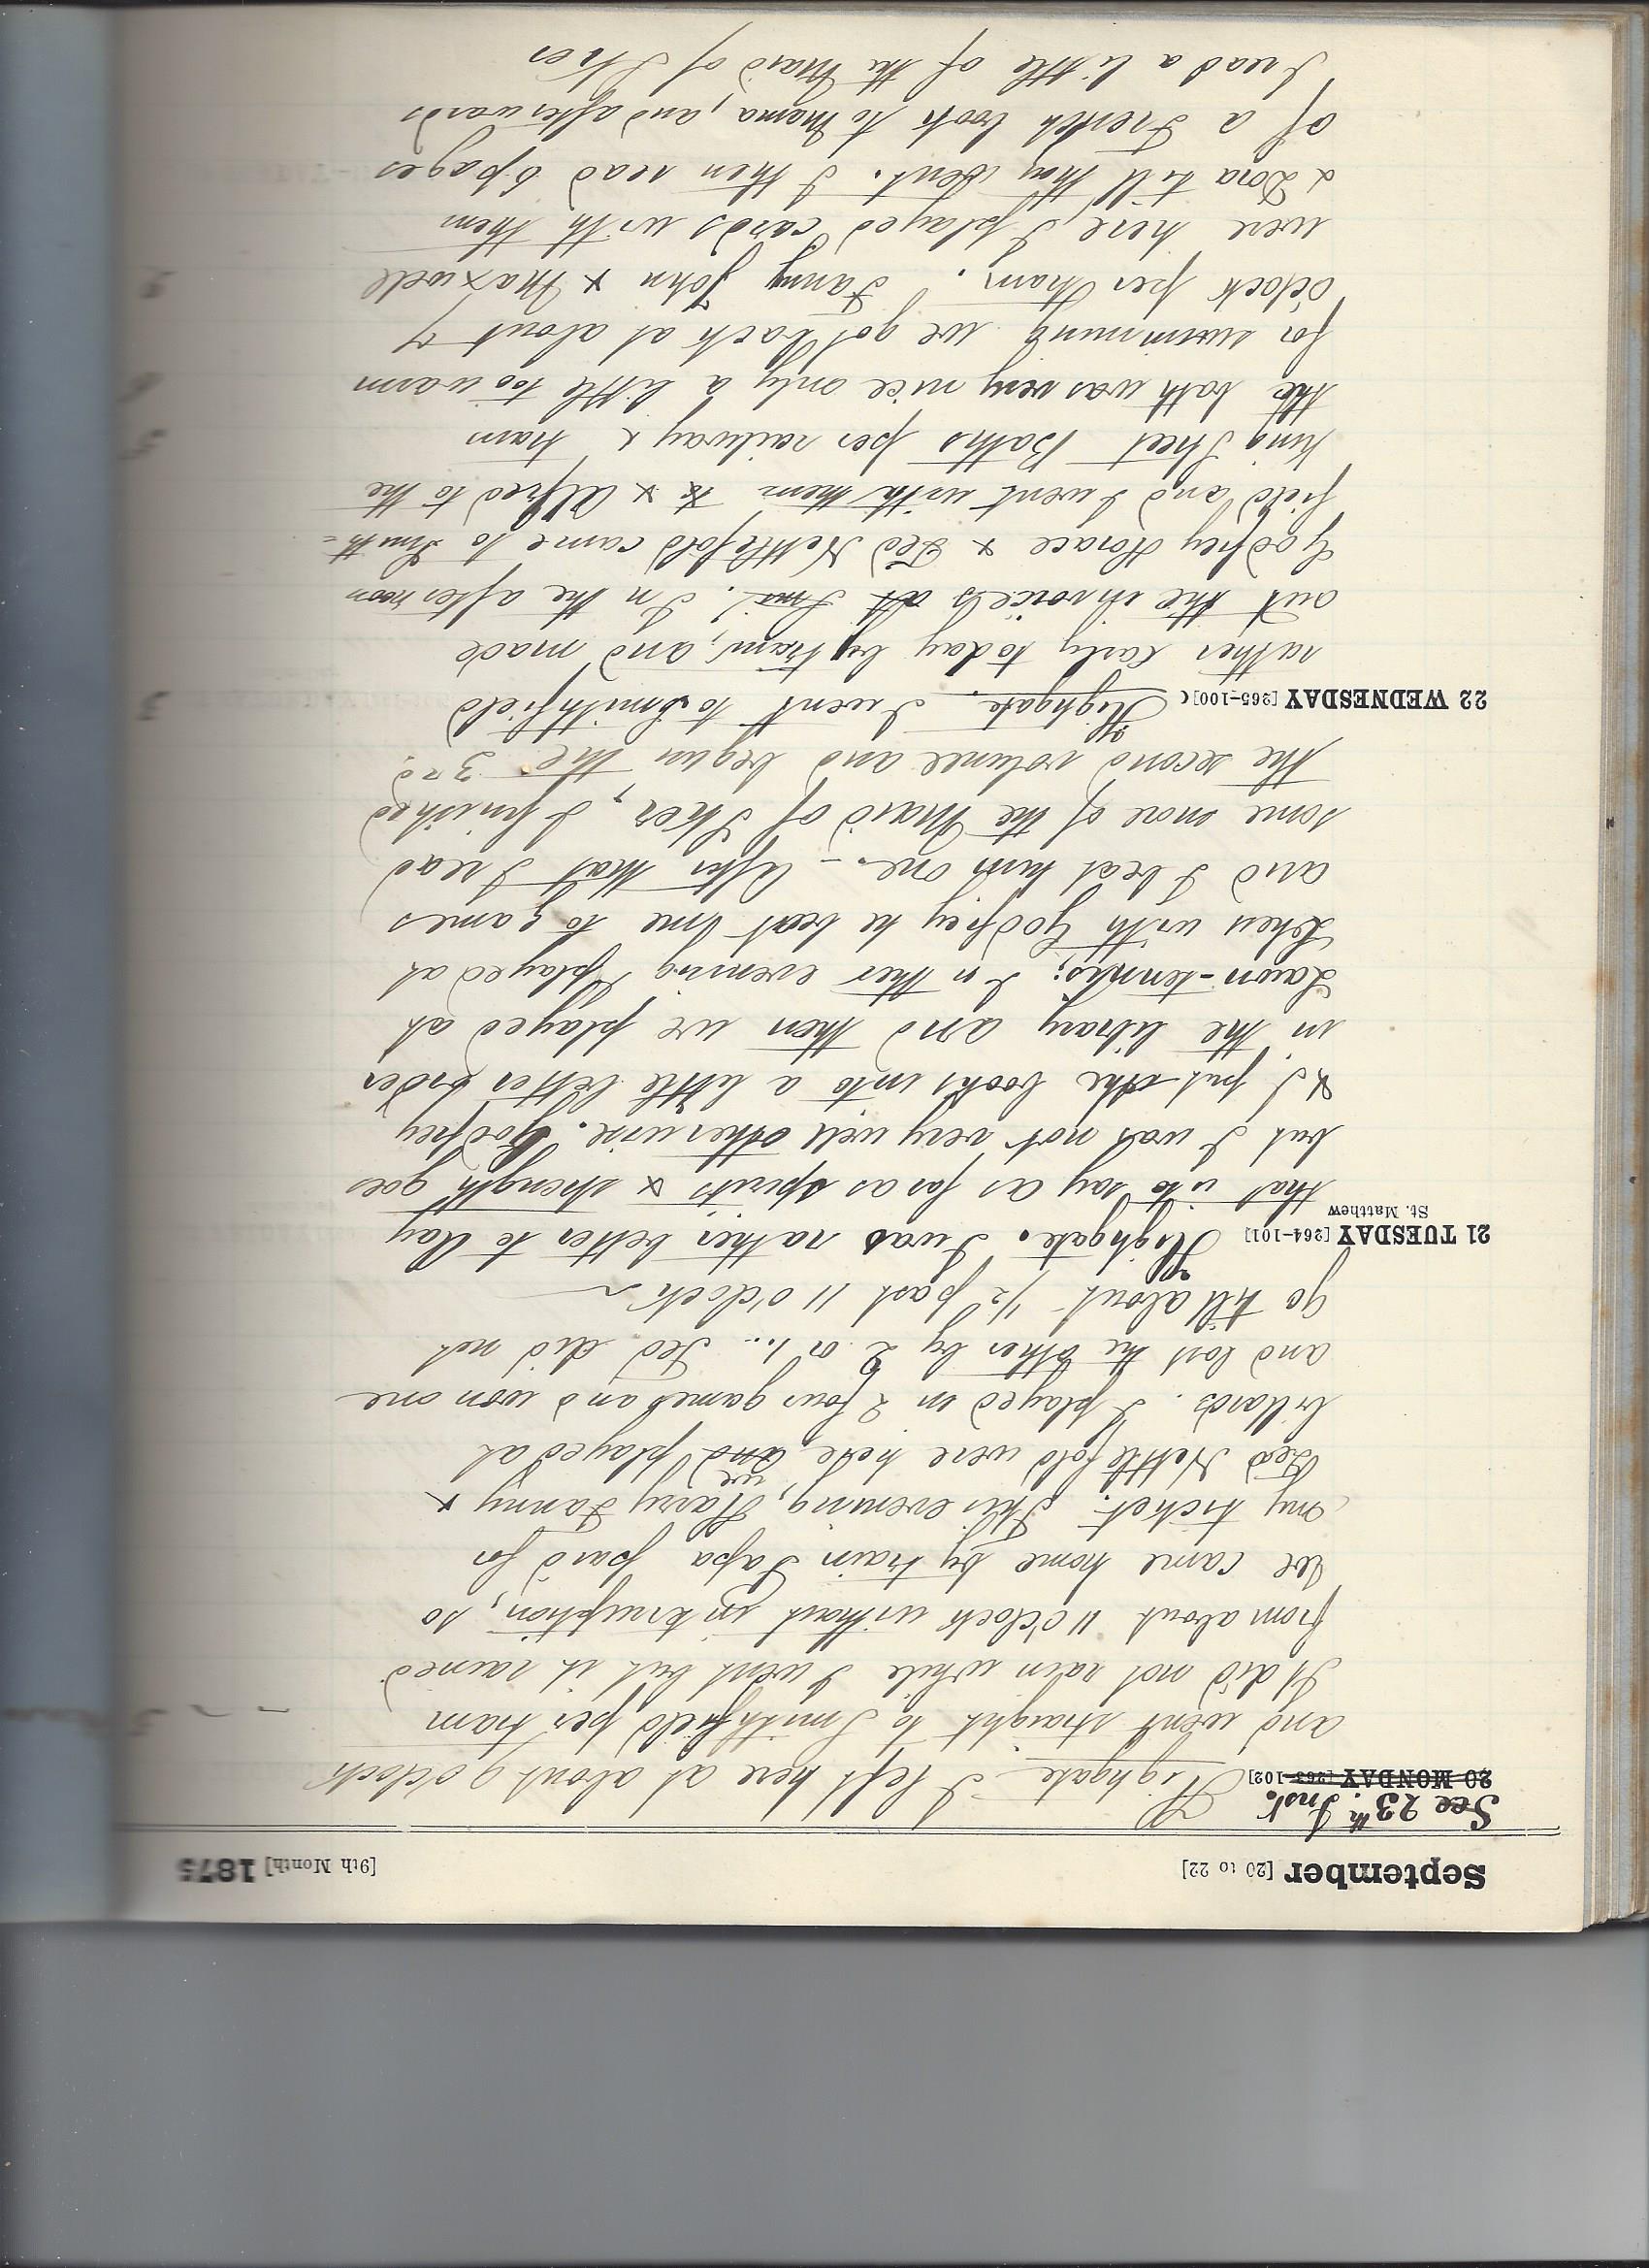 September [20 to 22] [9th Month] 1875
See 23th Inst.
20 MONDAY [263-102] Highgate I left here at about 9 o'clock
and went straight to Smithfield per tram
It did not rain while I went but it rained
from about 11 o'clock without interruption, so
we came home by train Papa paid for
my ticket. This evening, Harry Fanny &
Ted Nettlefold were here, and we played at
billards. I played in 2 four games and won one
and lost the other by 2 or 1... Ted did not
go till about ½ past 11 o'clock ~
21 TUESDAY [264-101] Highgate. I was rather better to day
St. Matthew that is to say as far as spirits & strength goes
but I was not very well otherwise. Godfrey
& I put the books into a little better order
in the library and then we played at
Lawn-tennis; In ther evening I played at
Chess with Godfrey he beat me to games
and I beat him one. - After that I read
some more of the Maid of Sker, I finished
the second volume and began the 3rd.
22 WEDNESDAY [265-100] ( Highgate. I went to Smithfield
rather early today by tram, and made
out the invoices att Smi. In the afternoon
Godfrey Horace & Ted Nettlefold came to Smith=
field and I went with them to & Alfred to the
King Street Baths per railway & tram
the bath was very nice only a little too warm
for swimming we got back at about 7
o'clock per tram. Fanny John & Maxwell
were here, I played cards with them
& Dora till they went. I then read 6 pages
of a French book to Mama, and afterwards
I read a little of the Maid of Sker